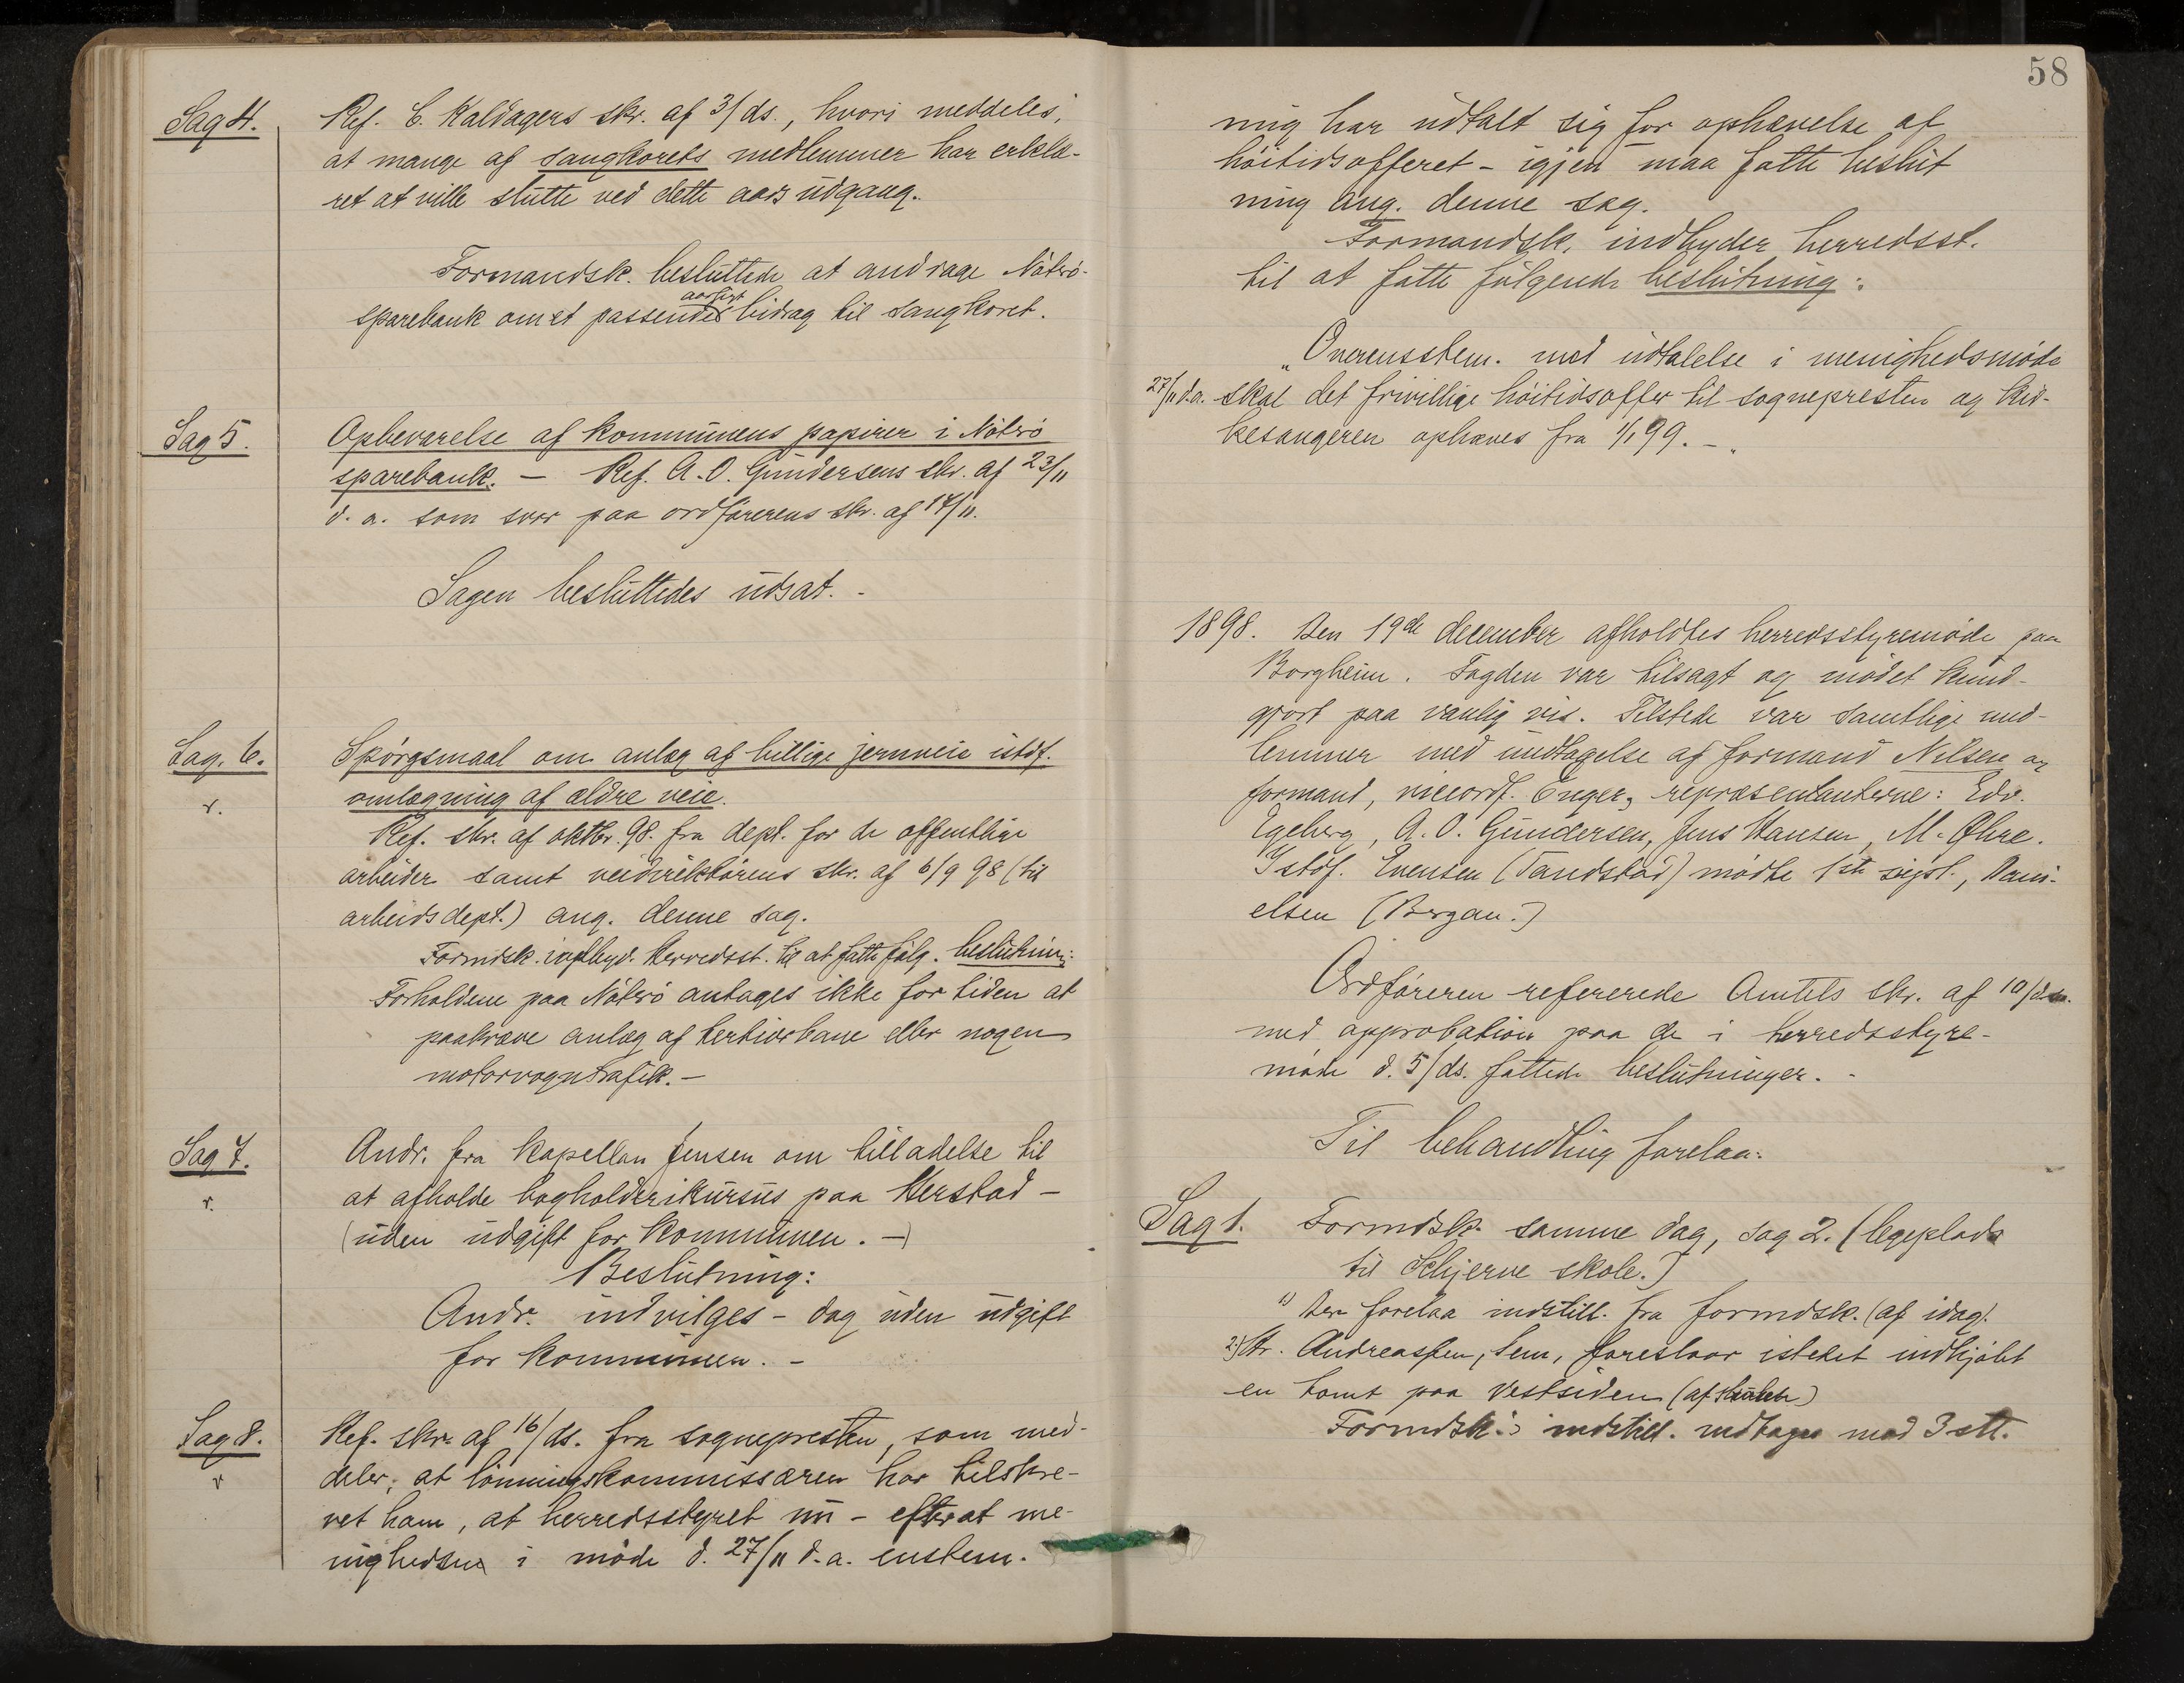 Sag 4. Ref. C. Kaldagers skr. af 3/ds., hvori meddeles,
at mange af sangkorets medlemmer har erklæ-
ret at ville slutte ved dette aars udgang.
Formandsk. besluttede at andrage Nøterø-
sparebank om et passende aarligt bidrag til sangkoret.
Sag 5. Opbevarelse af kommunens papirer i Nøterø
sparebank. — Ref. A. O. Gundersens skr. af 23/11
d. a. som svar paa ordførerens skr. af 17/11.
Sagen besluttedes udsat. -
Sag. 6. Spørgsmaal om anlæg af billige jernveie istdf.
omlægning af ældre veie.
v.
Ref. skr. af oktbr. 98. fra dept. for de offentlige
arbeider samt veidirektørens skr. af 6/9 98 (til
arbeidsdept.) ang. denne sag.
Formdsk. indbyd. Herredsst. til at fatte følg. beslutning:
Forholdene paa Nøterø antages ikke for tiden at
paakræve anlæg af tertiærbane eller nogen
motorvogntrafik. —
Sag 7. Andr. fra kapellan Jensen om tilladelse til
v. at afholde bogholderikursus paa Herstad —
(uden udgift for kommunen. —)
Beslutning:
Andr. indvilges - dog uden udgift
for kommunen. -
Sag 8. Ref. skr. af 16/ds. fra sognepresten, som med-
v deler, at lønningskommissæren har tilskre-
vet ham, at herredsstyret nu - efterat me-
nigheden i møde d. 27/11 d. a. enstem-
58
mig har udtalt sig for ophævelse af
høitidsofferet - igjen maa fatte beslut
ning ang. denne sag.
Formandsk. indbyder herredsst.
til at fatte følgende beslutning:
„Overensstem. med udtalelse i menighedsmøde
27/11 d.a. skal det frivillige høitidsoffer til sognepresten og kir-
kesangeren ophæves fra 1/1 99. -"
1898. Den 19de december afholdtes herredsstyremøde paa
Borgheim. Fogden var tilsagt og mødet kund-
gjort paa vanlig vis. Tilstede var samtlige med-
lemmer med undtagelse af formand Nilsen og
formand, viceordf. Enger, repræsentanterne: Edv.
Egeberg, A. O. Gundersen, Jens Hansen, M. Øhre.
Istdf. Evensen (Tandstad) mødte 1ste supl., Dani-
elsen (Bergan.)
Ordføreren refererede Amtets skr. af 10/ds.
med approbation paa de i herredsstyre-
møde d. 5/ds. fattede beslutninger. -
Til behandling forelaa:
Sag 1. Formdsk. samme dag, sag 2. (legeplads
til Skjerve skole.)
1) Her forelaa indstill. fra formdsk. (af idag).
2) Hr. Andreassen, Sem, foreslaar istedet indkjøbt
en tomt paa vestsiden (af skolen)
Formdsk.'s indstill. vedtages med 3 stt.